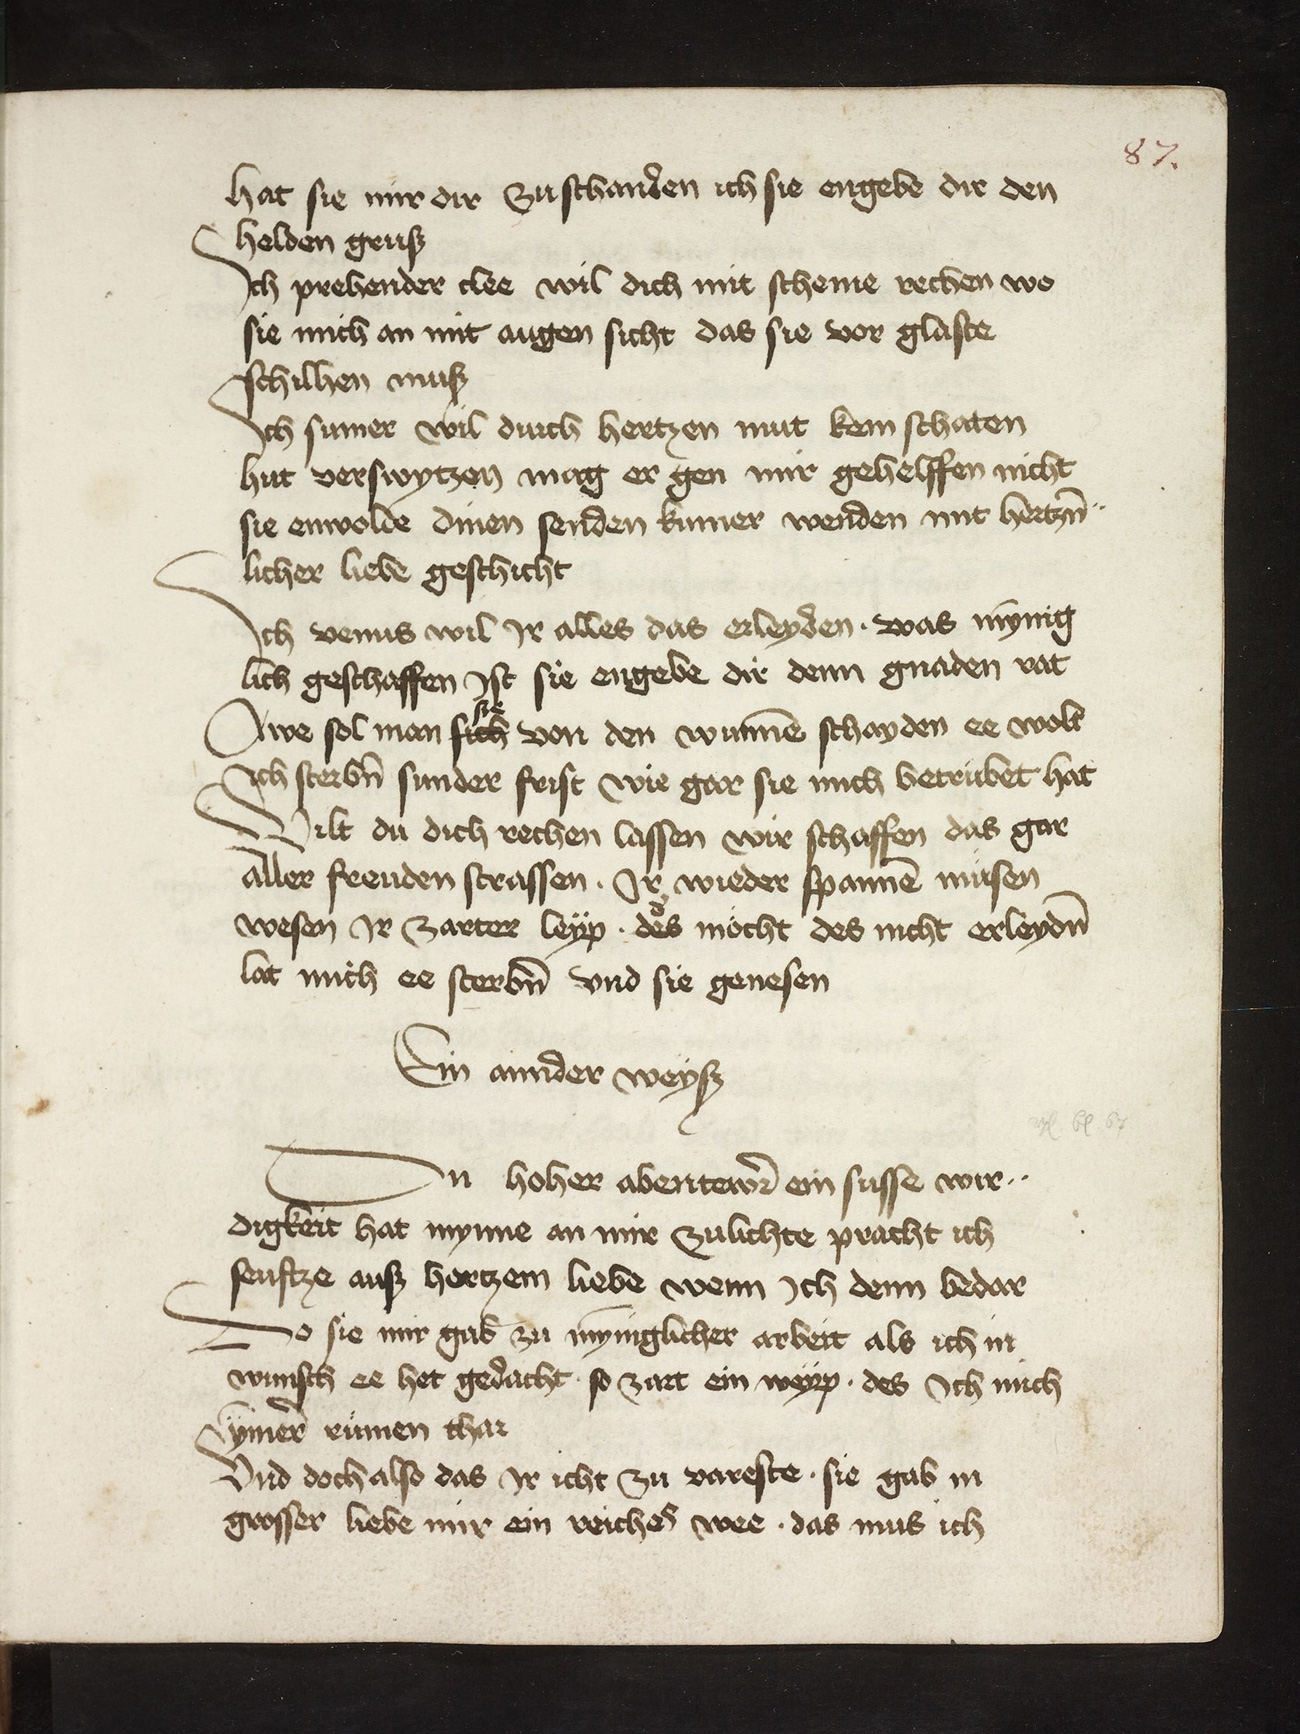 87.
hat sie mir dir zu schanden ich sie engebe dir den
helden gruß
Ich prehender clee wil dich mit scheme rechen wo
sie mich an mit augen sicht das sie vor glaste
schilhen muß
Ich sumer wil durch hertzen mut kein schaten
hut verswytzen mag er gen mir gehelffen nicht
sie enwolde dinen senden kumer wenden mit hertzn̄
licher liebe geschicht
Ich venus wil Ir alles das erleyden · was mȳnig
lich geschaffen Ist sie engebe dir denn gnaden rat
Awe sol man sich sie von den wunnē schayden ee wolt
Ich sterbn̄ sunder frist wie gar sie mich betrubet hat
Wilt du dich rechen lassen wir schaffen das gar
aller freuden strassen · Ir wieder spannē müsen
wesen Ir zarter leyp · des möcht des nicht erleydn̄
lat mich ee sterbn̄ vnd sie genesen
Ein annder weyß
In hoher abentewr̄ ein susse wir
digkeit hat mynne an mir zulichte pracht ich
seuftze auß hertzem liebe wenn Ich denn bedar
Do sie mir gab zu mȳniglicher arbeit als ich in
wunsch ee het gedacht · so zart ein weyp · des Ich mich
ȳmer rümen thar
Vnd doch also das Ir icht zu vareste · sie gab in
grosser liebe mir ein reiches wee · das mus ich